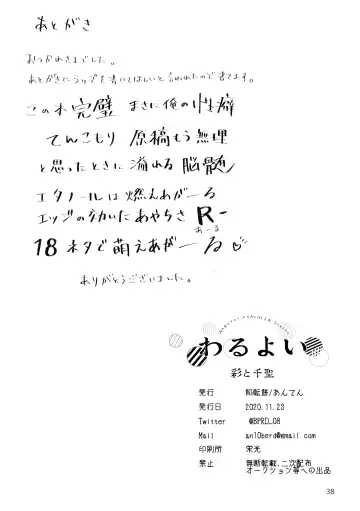 あとがき
おつかれさまでした。
あとがきにラップを書いてほしいと言われたので書きます。
この本完璧 まさに俺の性癖
てんこもり 原稿もう無理
と思ったときに溢れる脳髄
エタノールは燃えあがーる
エッジの効いたあやちさ R-
あーる
18ネタで萌えあがーる♡
ありがとうございました。
わるよい
彩と千聖
発行 餡転餅/あんてん
発行日 2020.11.23
Twitter @BPRD_08
Mail an10bprd@gmail.com
印刷所 栄光
禁止 無断転載,二次配布
オークション等への出品
38